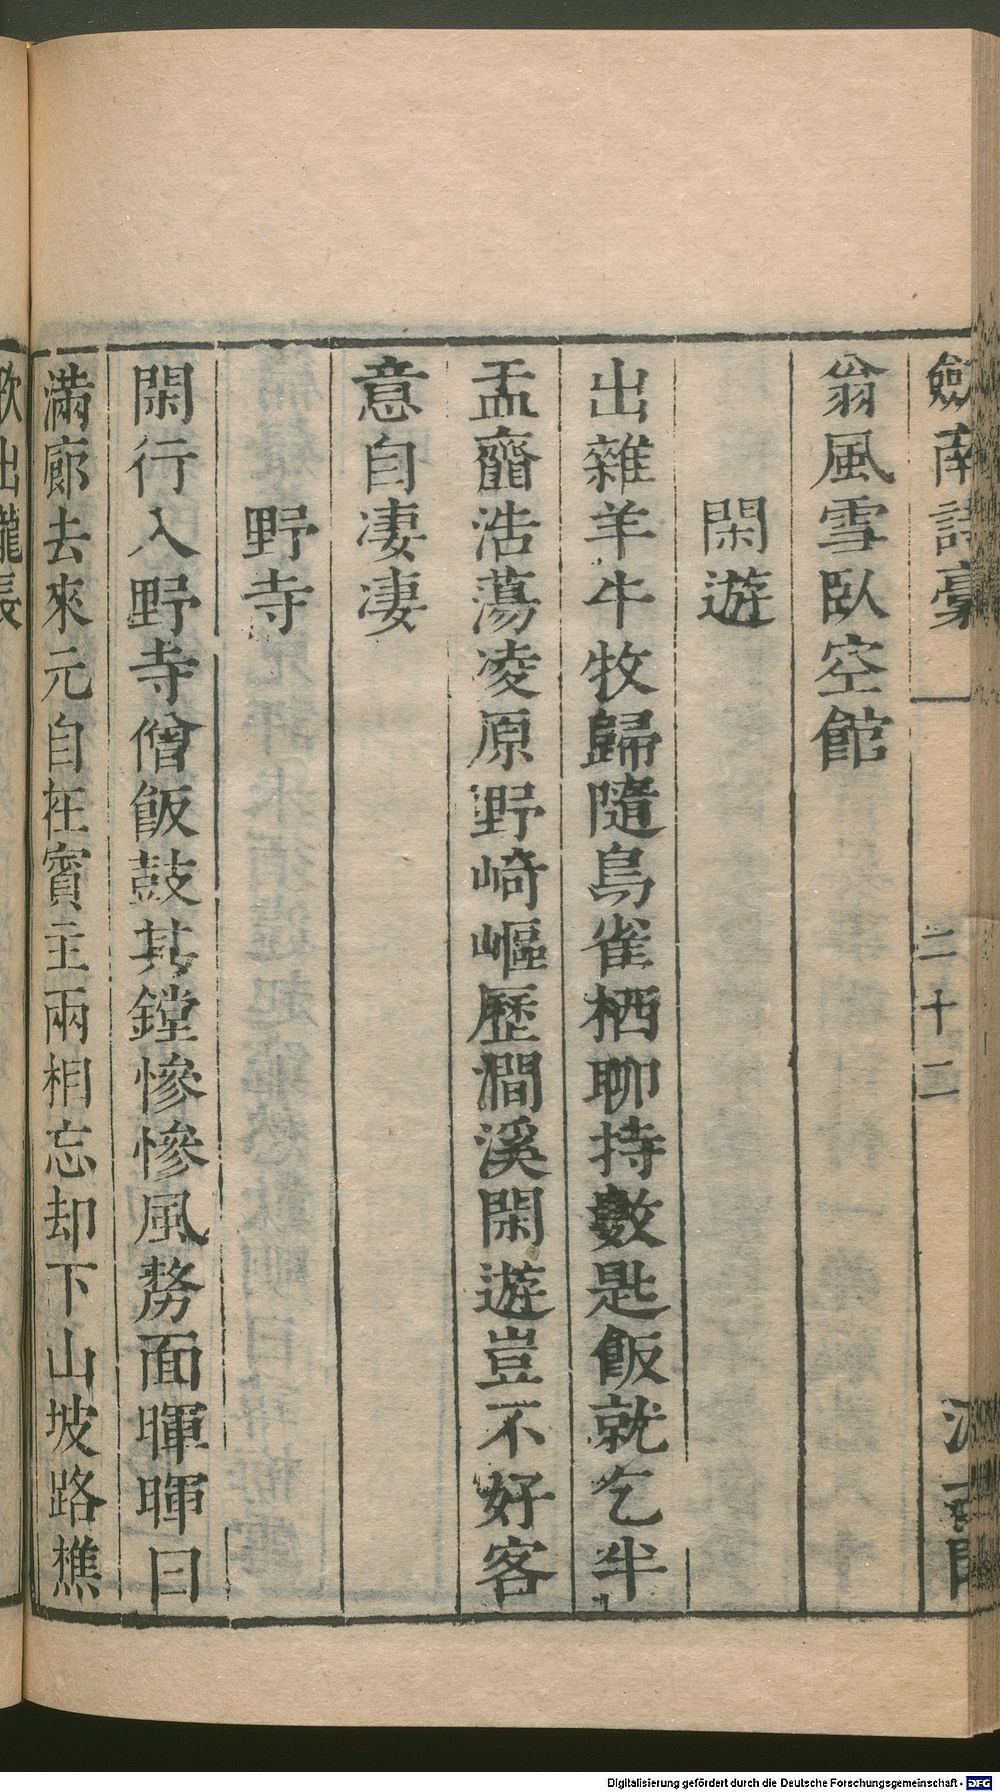 劒南詩稾 二十二 汲
翁風雪臥空館
閑遊
出雜羊牛牧歸隨鳥雀栖聊持數匙飯就乞半
盂齏浩蕩凌原野崎嶇歷澗溪閑遊豈不好客
意自凄凄
野寺
閑行入野寺僧飯鼓其鏜慘慘風剺面暉暉日
滿廊去來元自在賓主兩相忘却下山坡路樵
歌出隴長
Digitalisierung gefördert durch die Deutsche Forschungsgemeinschaft - DFG